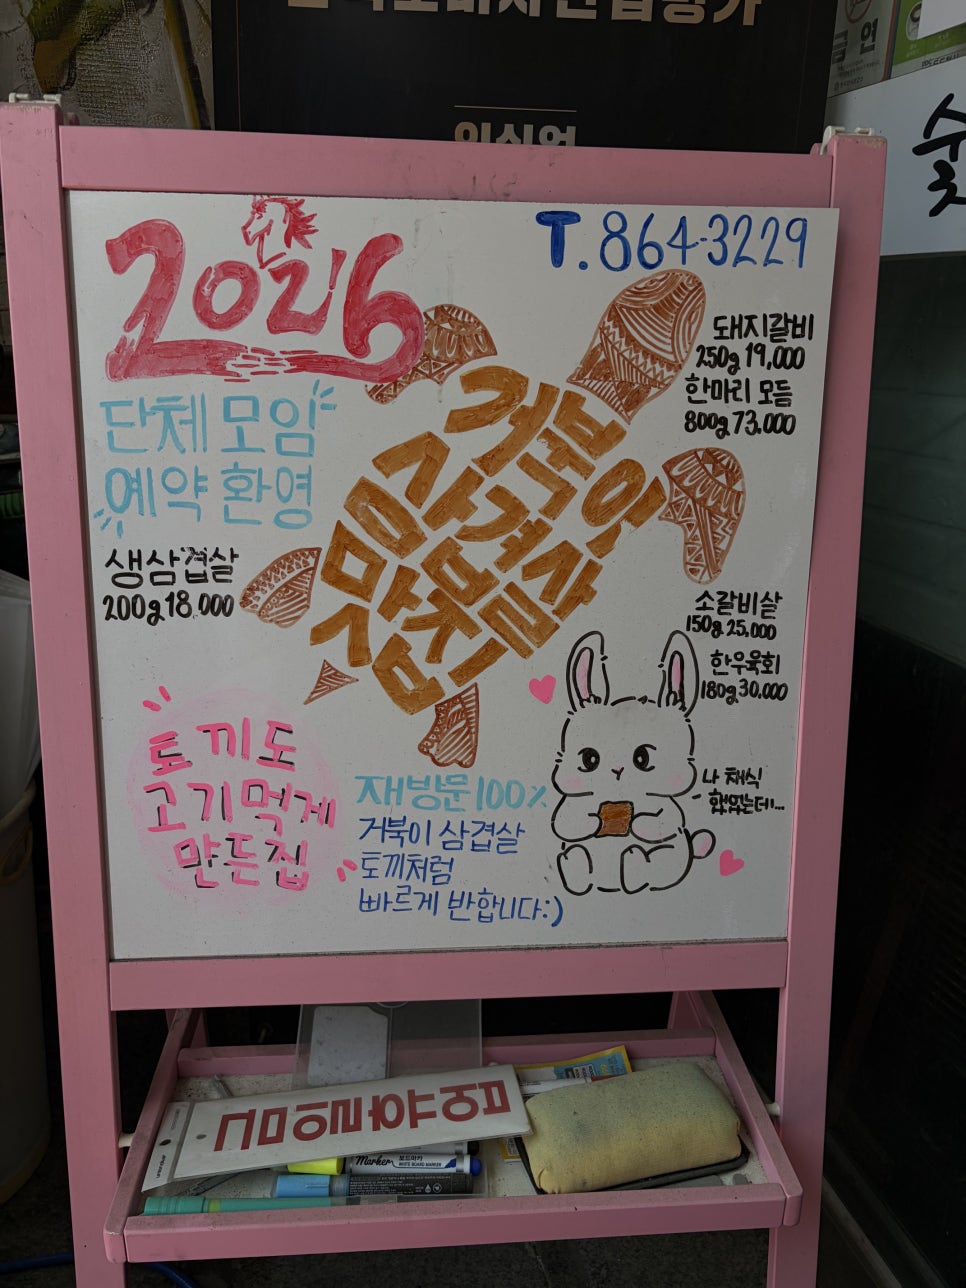 금연
숯
2026
T. 864-3229
돼지갈비
250g 19,000
한마리 모듬
800g 73,000
단체 모임
예약 환영
거북아
생삼겹살
200g 18,000
소갈비살
150g 25,000
한우육회
180g 30,000
토끼도
고기먹게
만든집
나 채식
했었는데...
재방문 100%
거북이 삼겹살
토끼처럼
빠르게 반합니다:)
Marker
보드마카
WHITE BOARD MARKER